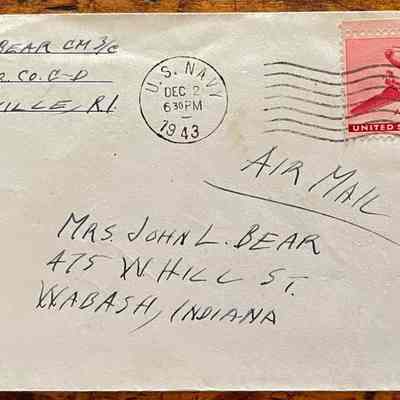 BEAR CM 3/C
CO. C-D
VILLE, R.I.
U.S. NAVY
DEC 2
6 30 PM
1943
UNITED S
AIR MAIL
MRS. JOHN L. BEAR
475 W HILL ST.
WABASH, INDIANA